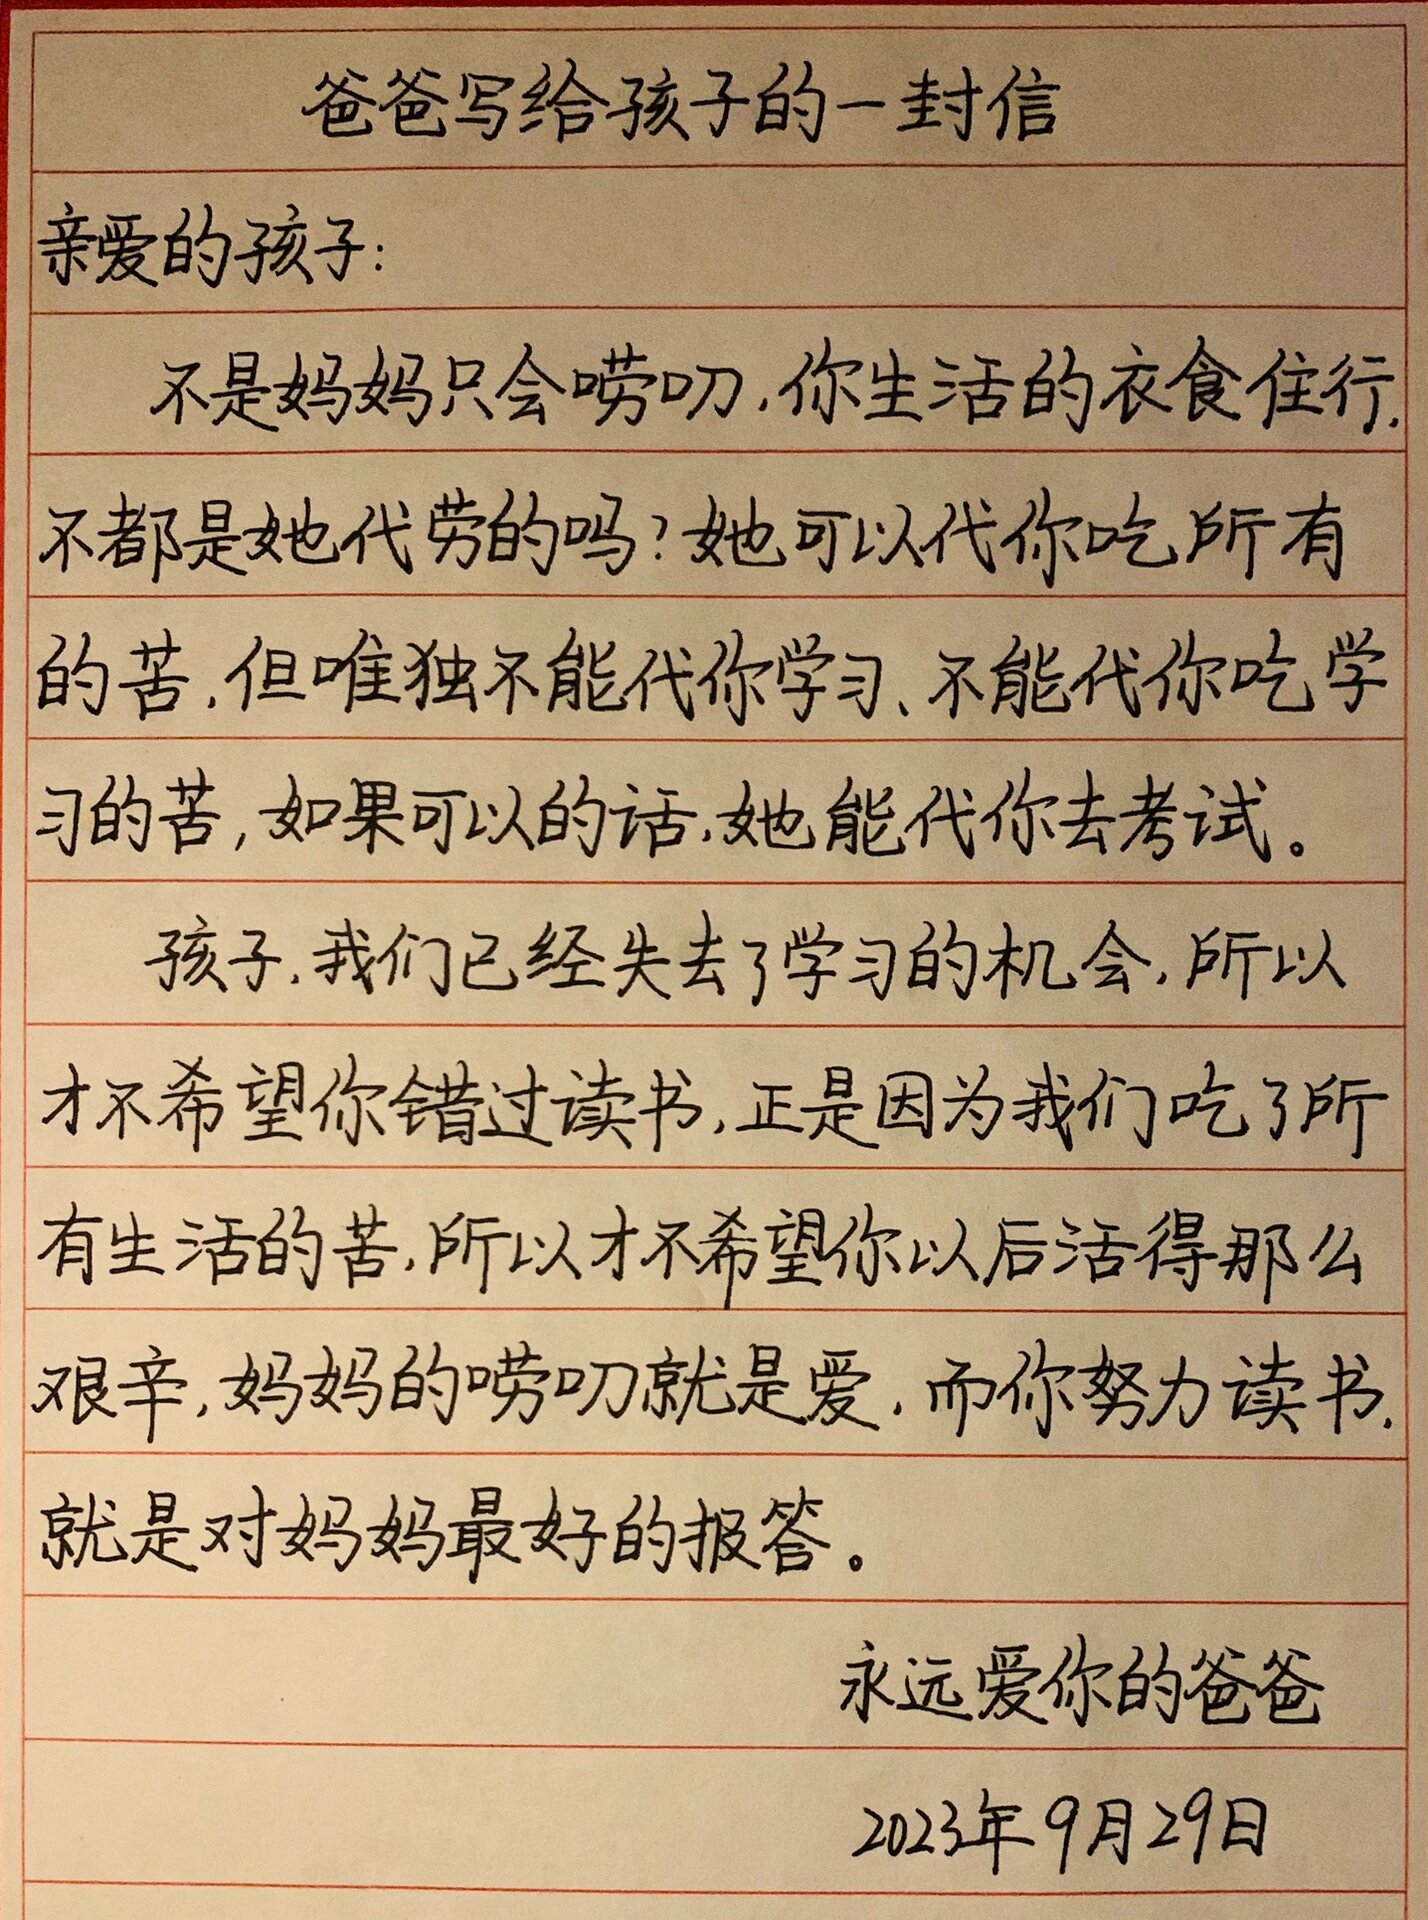 爸爸写给孩子的一封信
亲爱的孩子：
不是妈妈只会唠叨，你生活的衣食住行，
不都是她代劳的吗？她可以代你吃所有
的苦，但唯独不能代你学习、不能代你吃学
习的苦，如果可以的话，她能代你去考试。
孩子，我们已经失去了学习的机会，所以
才不希望你错过读书，正是因为我们吃了所
有生活的苦，所以才不希望你以后活得那么
艰辛，妈妈的唠叨就是爱，而你努力读书，
就是对妈妈最好的报答。
永远爱你的爸爸
2023年9月29日